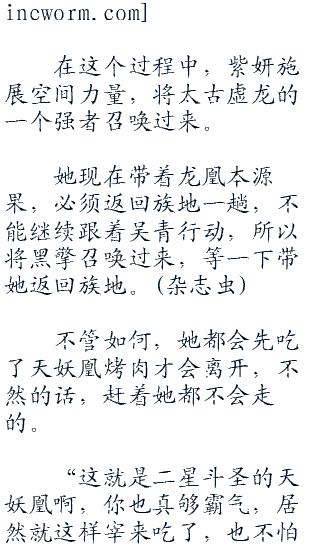 incworm.com]
在这个过程中，紫妍施
展空间力量，将太古虚龙的
一个强者召唤过来。
她现在带着龙凰本源
果，必须返回族地一趟，不
能继续跟着吴青行动，所以
将黑擎召唤过来，等一下带
她返回族地。(杂志虫)
不管如何，她都会先吃
了天妖凰烤肉才会离开，不
然的话，赶着她都不会走
的。
“这就是二星斗圣的天
妖凰啊，你也真够霸气，居
然就这样宰来吃了，也不怕